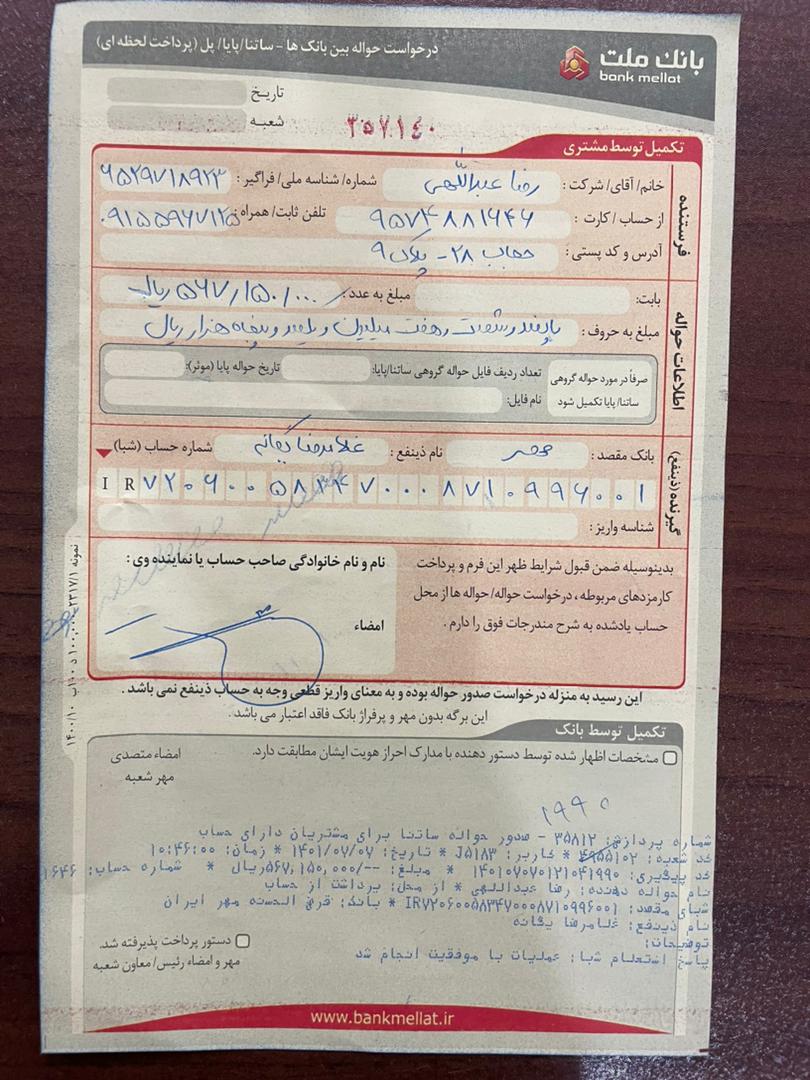 بانک ملت
bank mellat
درخواست حواله بین بانک ها - ساتنا/پایا/ پل (پرداخت لحظه ای)
تاریخ
شعبه
۳۵۷۱۴۰
تکمیل توسط مشتری
فرستنده
خانم/ آقای/ شرکت: رضا عبداللهی شماره/ شناسه ملی/ فراگیر: ۶۵۲۹۷۱۸۹۲۳
از حساب / کارت: ۹۵۷۴۸۸۱۶۴۶ تلفن ثابت/ همراه: ۰۹۱۵۵۹۶۷۱۲۵
آدرس و کد پستی: ۲۸ - پلاک ۹
اطلاعات حواله
بابت: مبلغ به عدد: ۵۶۷/۱۵۰/۰۰۰ ریال
مبلغ به حروف: پانصد و شصت و هفت میلیون و یکصد و پنجاه هزار ریال
صرفاً در مورد حواله گروهی ساتنا/ پایا تکمیل شود
تعداد ردیف فایل حواله گروهی ساتنا/پایا: تاریخ حواله پایا (موثر):
نام فایل:
گیرنده (ذینفع)
بانک مقصد: مهر نام ذینفع: غلامرضا یگانه شماره حساب (شبا)
IR۷۲۰۶۰۰۵۸۳۴۷۰۰۰۸۷۱۰۹۹۶۰۰۱
شناسه واریز:
بدینوسیله ضمن قبول شرایط ظهر این فرم و پرداخت
کارمزدهای مربوطه، درخواست حواله/ حواله ها از محل
حساب یادشده به شرح مندرجات فوق را دارم.
نام و نام خانوادگی صاحب حساب یا نماینده وی:
امضاء
این رسید به منزله درخواست صدور حواله بوده و به معنای واریز قطعی وجه به حساب ذینفع نمی باشد.
این برگه بدون مهر و پرفراژ بانک فاقد اعتبار می باشد.
تکمیل توسط بانک
مشخصات اظهار شده توسط دستور دهنده با مدارک احراز هویت ایشان مطابقت دارد.
امضاء متصدی
مهر شعبه
۱۹۹۰
شماره پردازش: ۳۵۸۱۲ - صدور حواله ساتنا برای مشتریان دارای حساب
کد شعبه: * کاربر: J۵۱۸۳ * تاریخ: ۱۴۰۱/۰۷/۰۷ * زمان: ۱۰:۴۶:۰۰
کد پیگیری: ۱۴۰۱۰۷۰۷۰۱۲۱۰۴۱۹۹۰ * مبلغ: --/۵۶۷,۱۵۰,۰۰۰ریال * شماره حساب: ۱۶۴۶
نام حواله دهنده: رضا عبداللهی * از محل: برداشت از حساب
شبای مقصد: IR۷۲۰۶۰۰۵۸۳۴۷۰۰۰۸۷۱۰۹۹۶۰۰۱ * بانک: قرض الحسنه مهر ایران
نام ذینفع: غلامرضا یگانه
توضیحات:
پاسخ استعلام شبا: عملیات با موفقیت انجام شد
دستور پرداخت پذیرفته شد.
مهر و امضاء رئیس/ معاون شعبه
www.bankmellat.ir